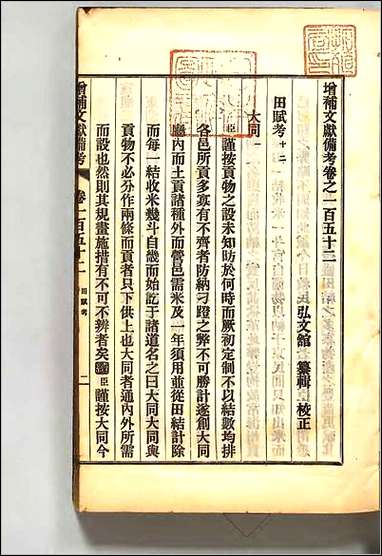 增補文獻備考卷之一百五十二
弘文館 纂輯 校正
田賦考十二
大同一
臣謹按貢物之設未知昉於何時而厥初定制不以結數均排
各邑所貢多寡有不齊者防納刁蹬之弊不可勝計遂創大同
廳內而土貢諸種外而營邑需米及一年須用並從田結計除
而每一結收米幾斗自畿而始訖于諸道名之曰大同大同與
貢物不必分作兩條而貢者只下供上也大同者通內外所需
而設也然則其規畫施措有不可不辨者矣 臣謹按大同今
增補文獻備考 卷一百五十二 田賦考 一